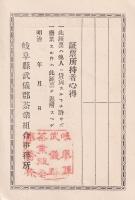 證票所持者心得
一此證票ハ他人ニ貸與スルコトヲ許サス
一廢業スル時ハ此證票ヲ返附スヘシ
明治　年　月　日
岐阜縣武儀郡茶業組合事務所